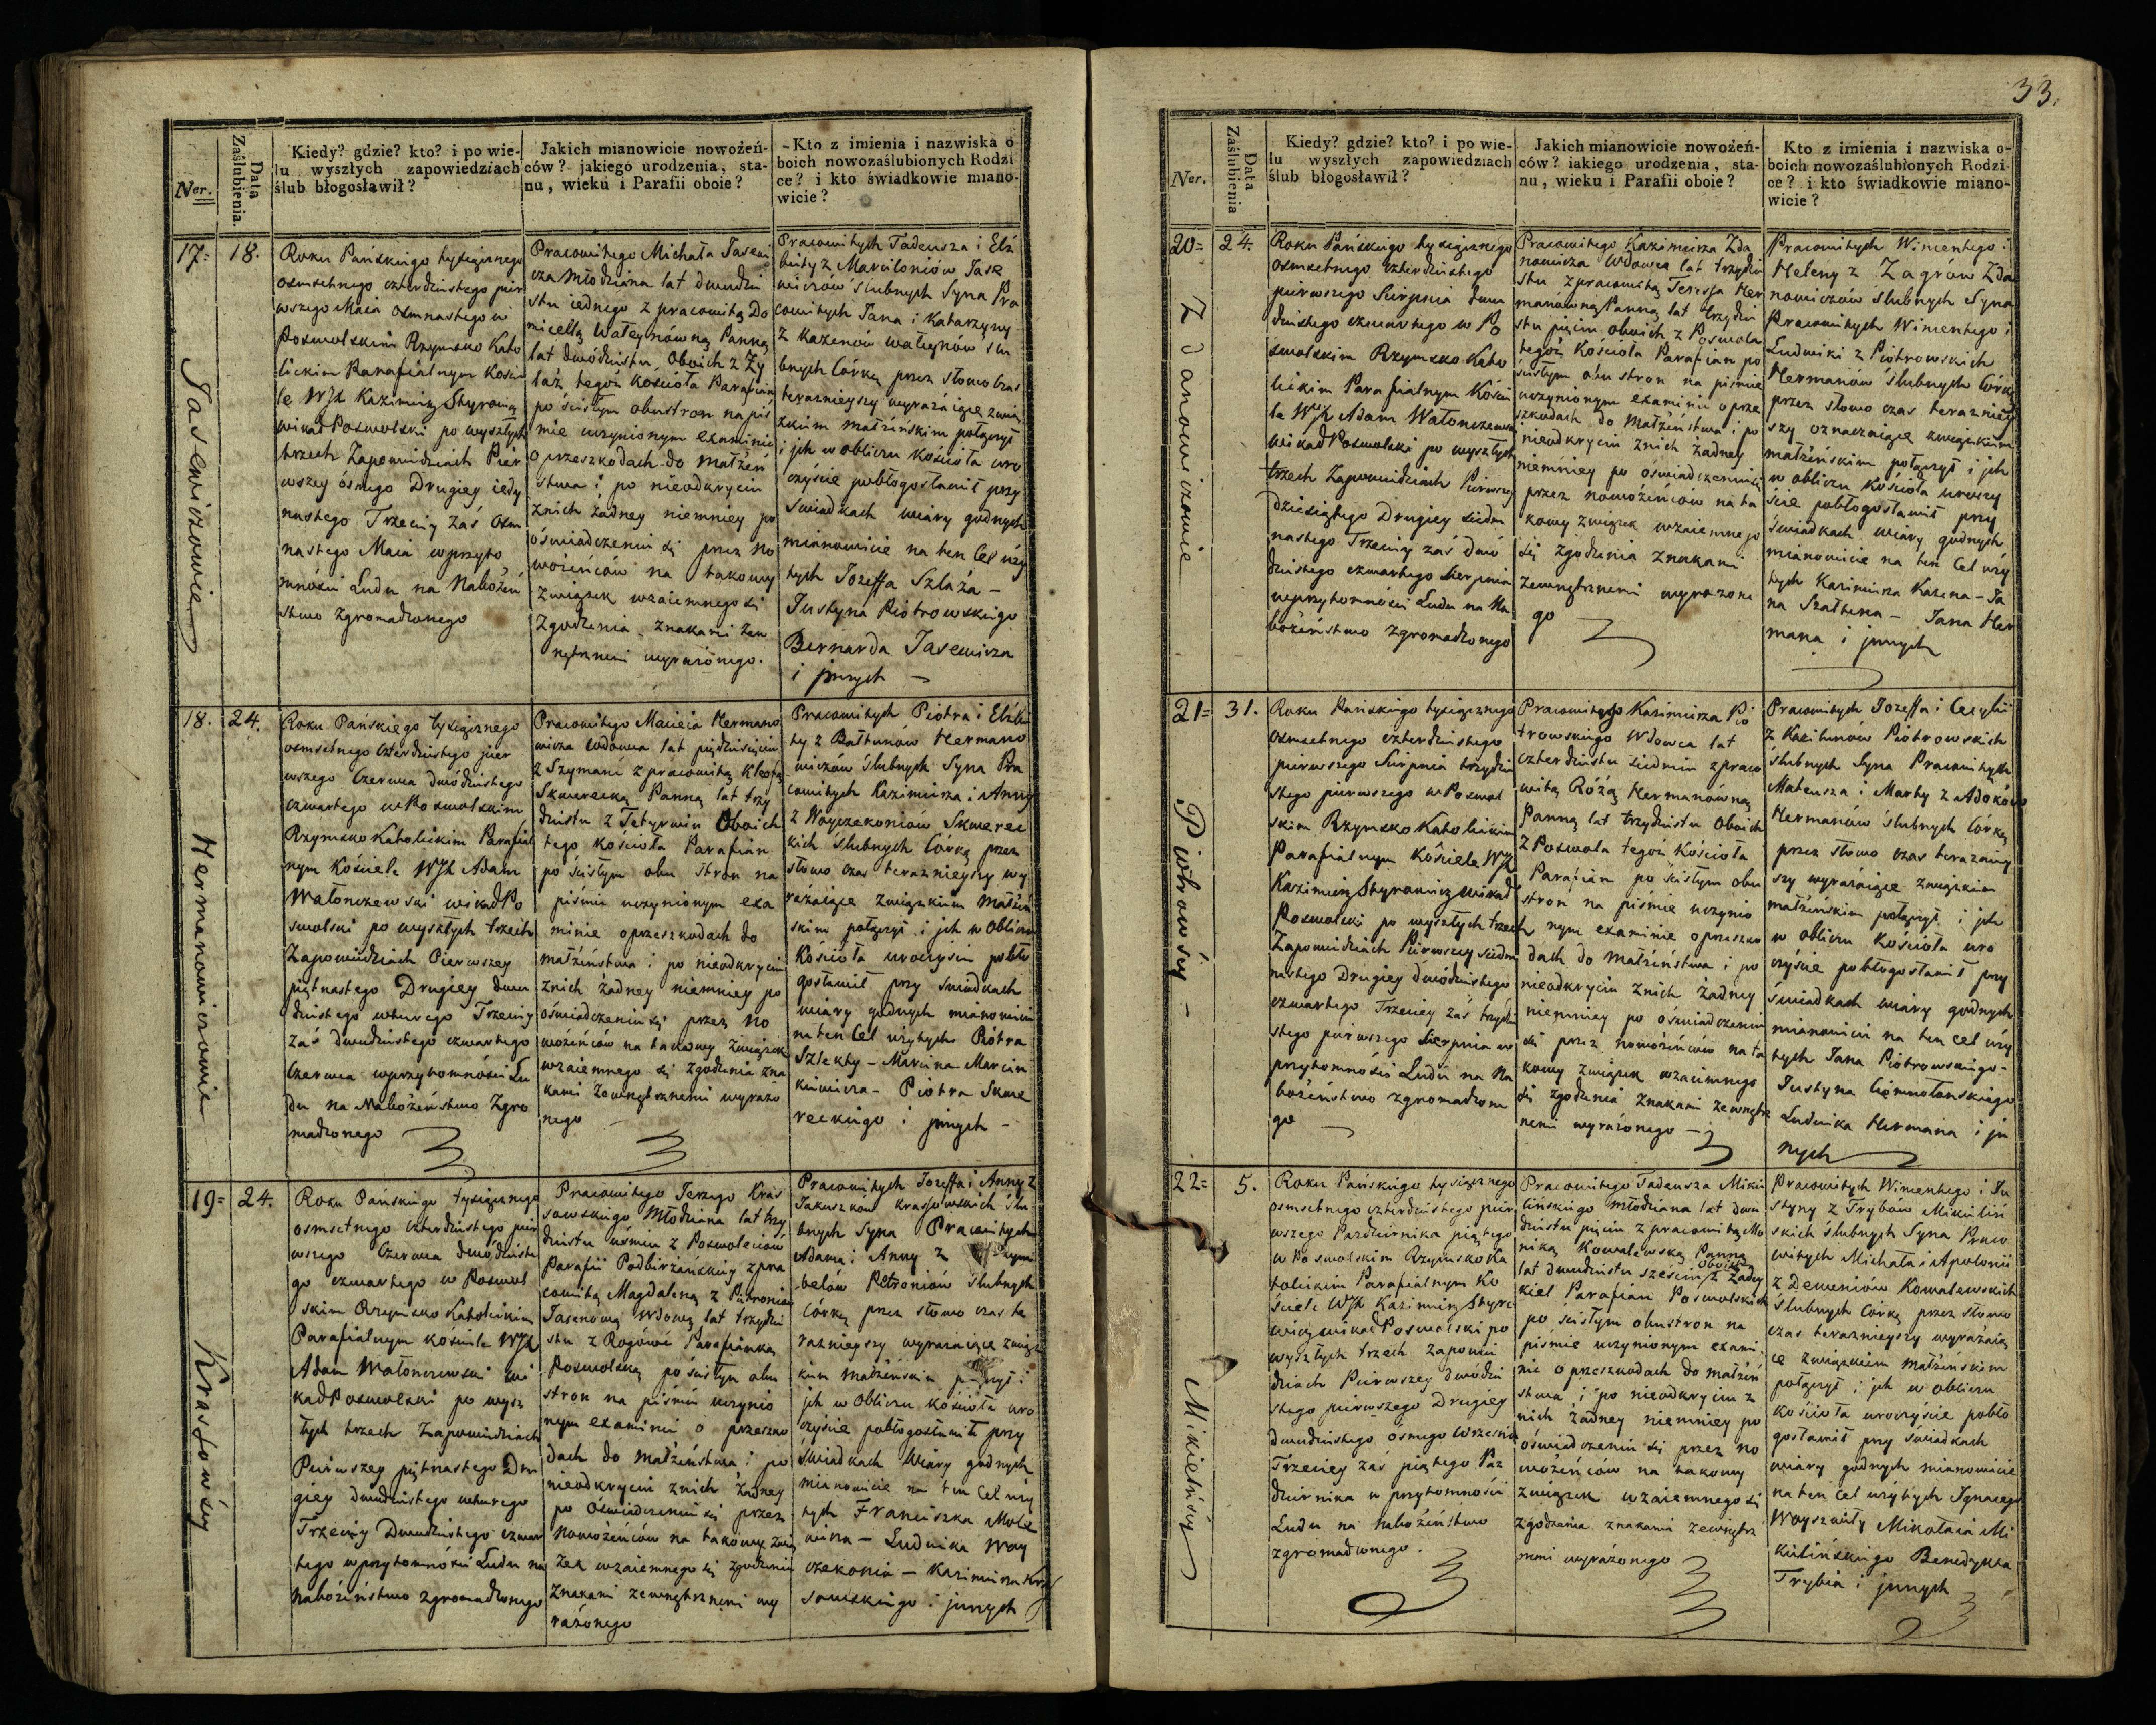 33.
Ner.
Data Zaślubienia.
Kiedy? gdzie? kto? i po wie-
lu wyszłych zapowiedziach
ślub błogosławił?
Jakich mianowicie nowożeń-
ców? jakiego urodzenia, sta-
nu, wieku i Parafii oboie?
Kto z imienia i nazwiska o
boich nowozaślubionych Rodzi
ce? i kto świadkowie miano-
wicie?
17=
Jasewiczowie
18.
Roku Pańskiego tysiącznego
osmsetnego czterdziestego pier
wszego Maia osmnastego w
Poswolskim Rzymsko Kato
lickim Parafialnym Kościе
le WJX Kazimierz Styrowicz
wikad Poswolski po wyszłych
trzech Zapowiedziach Pier
wszey ósmego Drugiey iedy
nastego Trzeciey zaś osm
nastego Maia w przyto
mności Ludu na Nabożeń
stwo zgromadzonego
Pracowitego Michała Jasewi
cza Młodziana lat dwudzie
stu iednego z pracowitą Do
micellą Wałęynówną Panną
lat dwódziestu Oboich z Zy
laź tegoż kościoła Parafian
po ścisłym obustron na piś
mie uczynionym examinie
o przeszkodach do małżeń
stwa i po nieodkryciu
znich żadney niemniey po
oświadczeniu się przez no
wożeńców na takowy
związek wzaiemnego się
zgodzenia znakami zew
nętrznemi wyrażonego.
Pracowitych Tadeusza i Elż
biety z Marciloniów Jase
wiczów ślubnych Syna Pra
cowitych Jana i Katarzyny
z Kazenów Wałęynów ślu
bnych Córkę przez słowo czas
teraznieyszy wyrażaiące zwią
zkiem małżeńskim połączył
i ich w obliczu Kościoła uro
czyście pobłogosławił przy
Świadkach wiary godnych
mianowicie na ten Cel uży
tych Jozeffa Szlaża -
Justyna Piotrowskiego
Bernarda Jasewicza
i jnnych -
18.
Hermanowiczowie
24.
Roku Pańskiego tysiącznego
osmsetnego czterdziestego pier
wszego Czerwca dwódziestego
czwartego w Poswolskim
Rzymsko Katolickim Parafial
nym Kościele WJX Adam
Watonczewski wikad Po
swolski po wyszłych trzech
Zapowiedziach Pierwszey
piętnastego Drugiey dwu
dziestego wtorego Trzeciey
zaś dwudziestego czwartego
Czerwca w przytomności Lu
du na Nabożeństwo Zgro
madzonego
Pracowitego Macieia Hermano
wicza wdowca lat pięćdziesięciu
z Szymańc z pracowitą Kleofą
Skwerecką Panną lat trzy
dziestu z Tetyrwin Oboich
tego kościoła Parafian
po ścisłym obu stron na
piśmie uczynionym exa
minie o przeszkodach do
małżeństwa i po nieodkryciu
znich żadney niemniey po
oświadczeniu się przez no
wożeńców na takowy związek
wzaiemnego się zgodzenia zna
kami zewnętrznemi wyrażo
nego
Pracowitych Piotra i Elżbie
ty z Bałtunów Hermano
wiczów ślubnych Syna Pra
cowitych Kazimierza i Anny
z Woyczekoniow Skwerec
kich ślubnych Córkę przez
słowo czas teraznieyszy wy
rażaiące związkiem Małżeń
skim połączył i ich w Obliczu
Kościoła uroczyście pobło
gosławił przy świadkach
wiary godnych mianowicie
na ten Cel użytych Piotra
Szlekty - Marcina Marcin
kiewicza - Piotra Skwe
reckiego i jnnych -
19=
Krassowscy
24.
Roku Pańskiego tysiącznego
osmsetnego czterdziestego pier
wszego Czerwca dwódzieste
go czwartego w Poswol
skim Rzymsko Katolickim
Parafialnym kościele WJX
Adam Watonczewski wi
kad Poswolski po wysz
łych trzech Zapowiedziach
Pierwszey piętnastego Dru
giey dwudziestego wtorego
Trzeciey Dwudziestego czwar
tego w przytomności Ludu na
nabożeństwo zgromadzonego
Pracowitego Jerzego Kras
sowskiego Młodziana lat trzy
dziestu ósmiu z Poswoleciów
Parafii Podbirżańskiey z pra
cowitą Magdaleną z Petroniów
Jasenową Wdową lat trzydzie
stu z Rogówc Parafianką
Poswolską po ścisłym obu
stron na piśmie uczynio
nym examinie o przeszko
dach do małżeństwa i po
nieodkryciu znich żadney
po oświadczeniu się przez
nowożeńców na takowy zwią
zek wzaiemnego się zgodzenia
znakami zewnętrznemi wy
rażonego
Pracowitych Jozeffa i Anny z
Jakuszków Krassowskich ślu
bnych Syna Pracowitych
Adama i Anny z
belów Petroniów ślubnych
Córkę przez słowo czas te
raznieyszy wyrażaiące związ
kiem małżeńskim i
ich w Obliczu kościoła uro
czyście pobłogosławił przy
świadkach Wiary godnych
mianowicie na ten Cel uży
tych Franciszka Mole
wicza - Ludwika Woy
czekonia - Kazimierza Kras
sowskiego i jnnych
Ner.
Data Zaślubienia
Kiedy? gdzie? kto? i po wie-
lu wyszłych zapowiedziach
ślub błogosławił?
Jakich mianowicie nowożeń-
ców? iakiego urodzenia, sta-
nu, wieku i Parafii oboie?
Kto z imienia i nazwiska o-
boich nowozaślubionych Rodzi-
ce? i kto świadkowie miano-
wicie?
20=
Zdanowiczowie
24.
Roku Pańskiego tysiącznego
osmsetnego czterdziestego
pierwszego Sierpnia dwu
dziestego czwartego w Po
swolskim Rzymsko Kato
lickim Parafialnym Koście
le WJX Adam Watonczewski
wikad Poswolski po wyszłych
trzech Zapowiedziach Pierwszey
dziesiątego Drugiey siedm
nastego Trzeciey zaś dwó
dziestego czwartego Sierpnia
w przytomności Ludu na Na
bożeństwo zgromadzonego
Pracowitego Kazimierza Zda
nowicza Wdowca lat trzydzie
stu z pracowitą Teressą Her
manówną Panną lat trzydzie
stu pięciu oboich z Poswola
tegoż Kościoła Parafian po
ścisłym obu stron na piśmie
uczynionym examinie o prze
szkodach do Małżeństwa i po
nieodkryciu znich żadney
niemniey po oświadczeniu się
przez nowożeńców na ta
kowy związek wzaiemnego
się zgodzenia znakami
zewnętrznemi wyrażone
go
Pracowitych Wincentego i
Heleny z Zagrów Zda
nowiczów ślubnych Syna
Pracowitych Wincentego i
Ludwiki z Piotrowskich
Hermanów ślubnych Córkę
przez słowo czas teraźniey
szy oznaczaiące związkiem
małżeńskim połączył i ich
w obliczu Kościoła uroczy
ście pobłogosławił przy
świadkach wiary godnych
mianowicie na ten Cel uży
tych Kazimierza Kazena - Ja
na Szałtena - Jana Her
mana i jnnych
21=
Piotrowscy -
31.
Roku Pańskiego tysiącznego
osmsetnego czterdziestego
pierwszego Sierpnia trzydzie
stego pierwszego w Poswol
skim Rzymsko Katolickim
Parafialnym Kościele WJX
Kazimierz Styrowicz wikad
Poswolski po wyszłych trzech
Zapowiedziach Pierwszey siedm
nastego Drugiey dwódziestego
czwartego Trzeciey zaś trzydzie
stego pierwszego Sierpnia w
przytomności Ludu na Na
bożeństwo zgromadzone
go
Pracowitego Kazimierza Pio
trowskiego Wdowca lat
czterdziestu siedmiu z praco
witą Różą Hermanówną
Panną lat trzydziestu Oboich
z Poswola tegoż Kościoła
Parafian po ścisłym obu
stron na piśmie uczynio
nym examinie o przeszko
dach do Małżeństwa i po
nieodkryciu znich żadney
niemniey po oświadczeniu
się przez nowożeńców na ta
kowy związek wzaiemnego
się zgodzenia znakami zewnętrz
nemi wyrażonego -
Pracowitych Jozeffa i Cecylii
z Kazilunów Piotrowskich
ślubnych Syna Pracowitych
Mateusza i Marty z Adoków
Hermanów ślubnych Córkę
przez słowo czas teraźniey
szy wyrażaiące związkiem
małżeńskim połączył i ich
w obliczu Kościoła uro
czyście pobłogosławił przy
świadkach wiary godnych
mianowicie na ten cel uży
tych Jana Piotrowskiego -
Justyna Ciemnołonskiego
Ludwika Hermana i jn
nych
22=
Mikielińscy
5.
Roku Pańskiego tysiącznego
osmsetnego czterdziestego pier
wszego Pazdziernika piątego
w Poswolskim Rzymsko Ka
tolickim Parafialnym Ko
ściele WJX Kazimierz Styro
wicz wikad Poswolski po
wyszłych trzech zapowie
dziach Pierwszey dwódzie
stego pierwszego Drugiey
dwudziestego osmego Września
Trzeciey zaś piątego Paz
dziernika w przytomności
Ludu na nabożeństwo
zgromadzonego.
Pracowitego Tadeusza Mikie
lińskiego młodziana lat dwu
dziestu pięciu z pracowitą Mo
niką Kowalewską Panną
lat dwudziestu sześciu oboich z Zady
kiel Parafian Poswolskich
po ścisłym obustron na
piśmie uczynionym exami
nie o przeszkodach do małżeń
stwa i po nieodkryciu z
nich żadney niemniey po
oświadczeniu się przez no
wożeńców na takowy
związek wzaiemnego się
zgodzenia znakami zewnętrz
nemi wyrażonego
Pracowitych Wincentego i Ju
styny z Trybów Mikieliń
skich ślubnych Syna Praco
witych Michała i Apolonii
z Deweniów Kowalewskich
Ślubnych Córkę przez słowo
czas teraznieyszy wyrażaią
ce związkiem małżeńskim
połączył i ich w obliczu
Kościoła uroczyście pobło
gosławił przy świadkach
wiary godnych mianowicie
na ten cel użytych Ignacego
Woyszwiły Mikołaia Mi
kielińskiego Benedykta
Trybia i jnnych